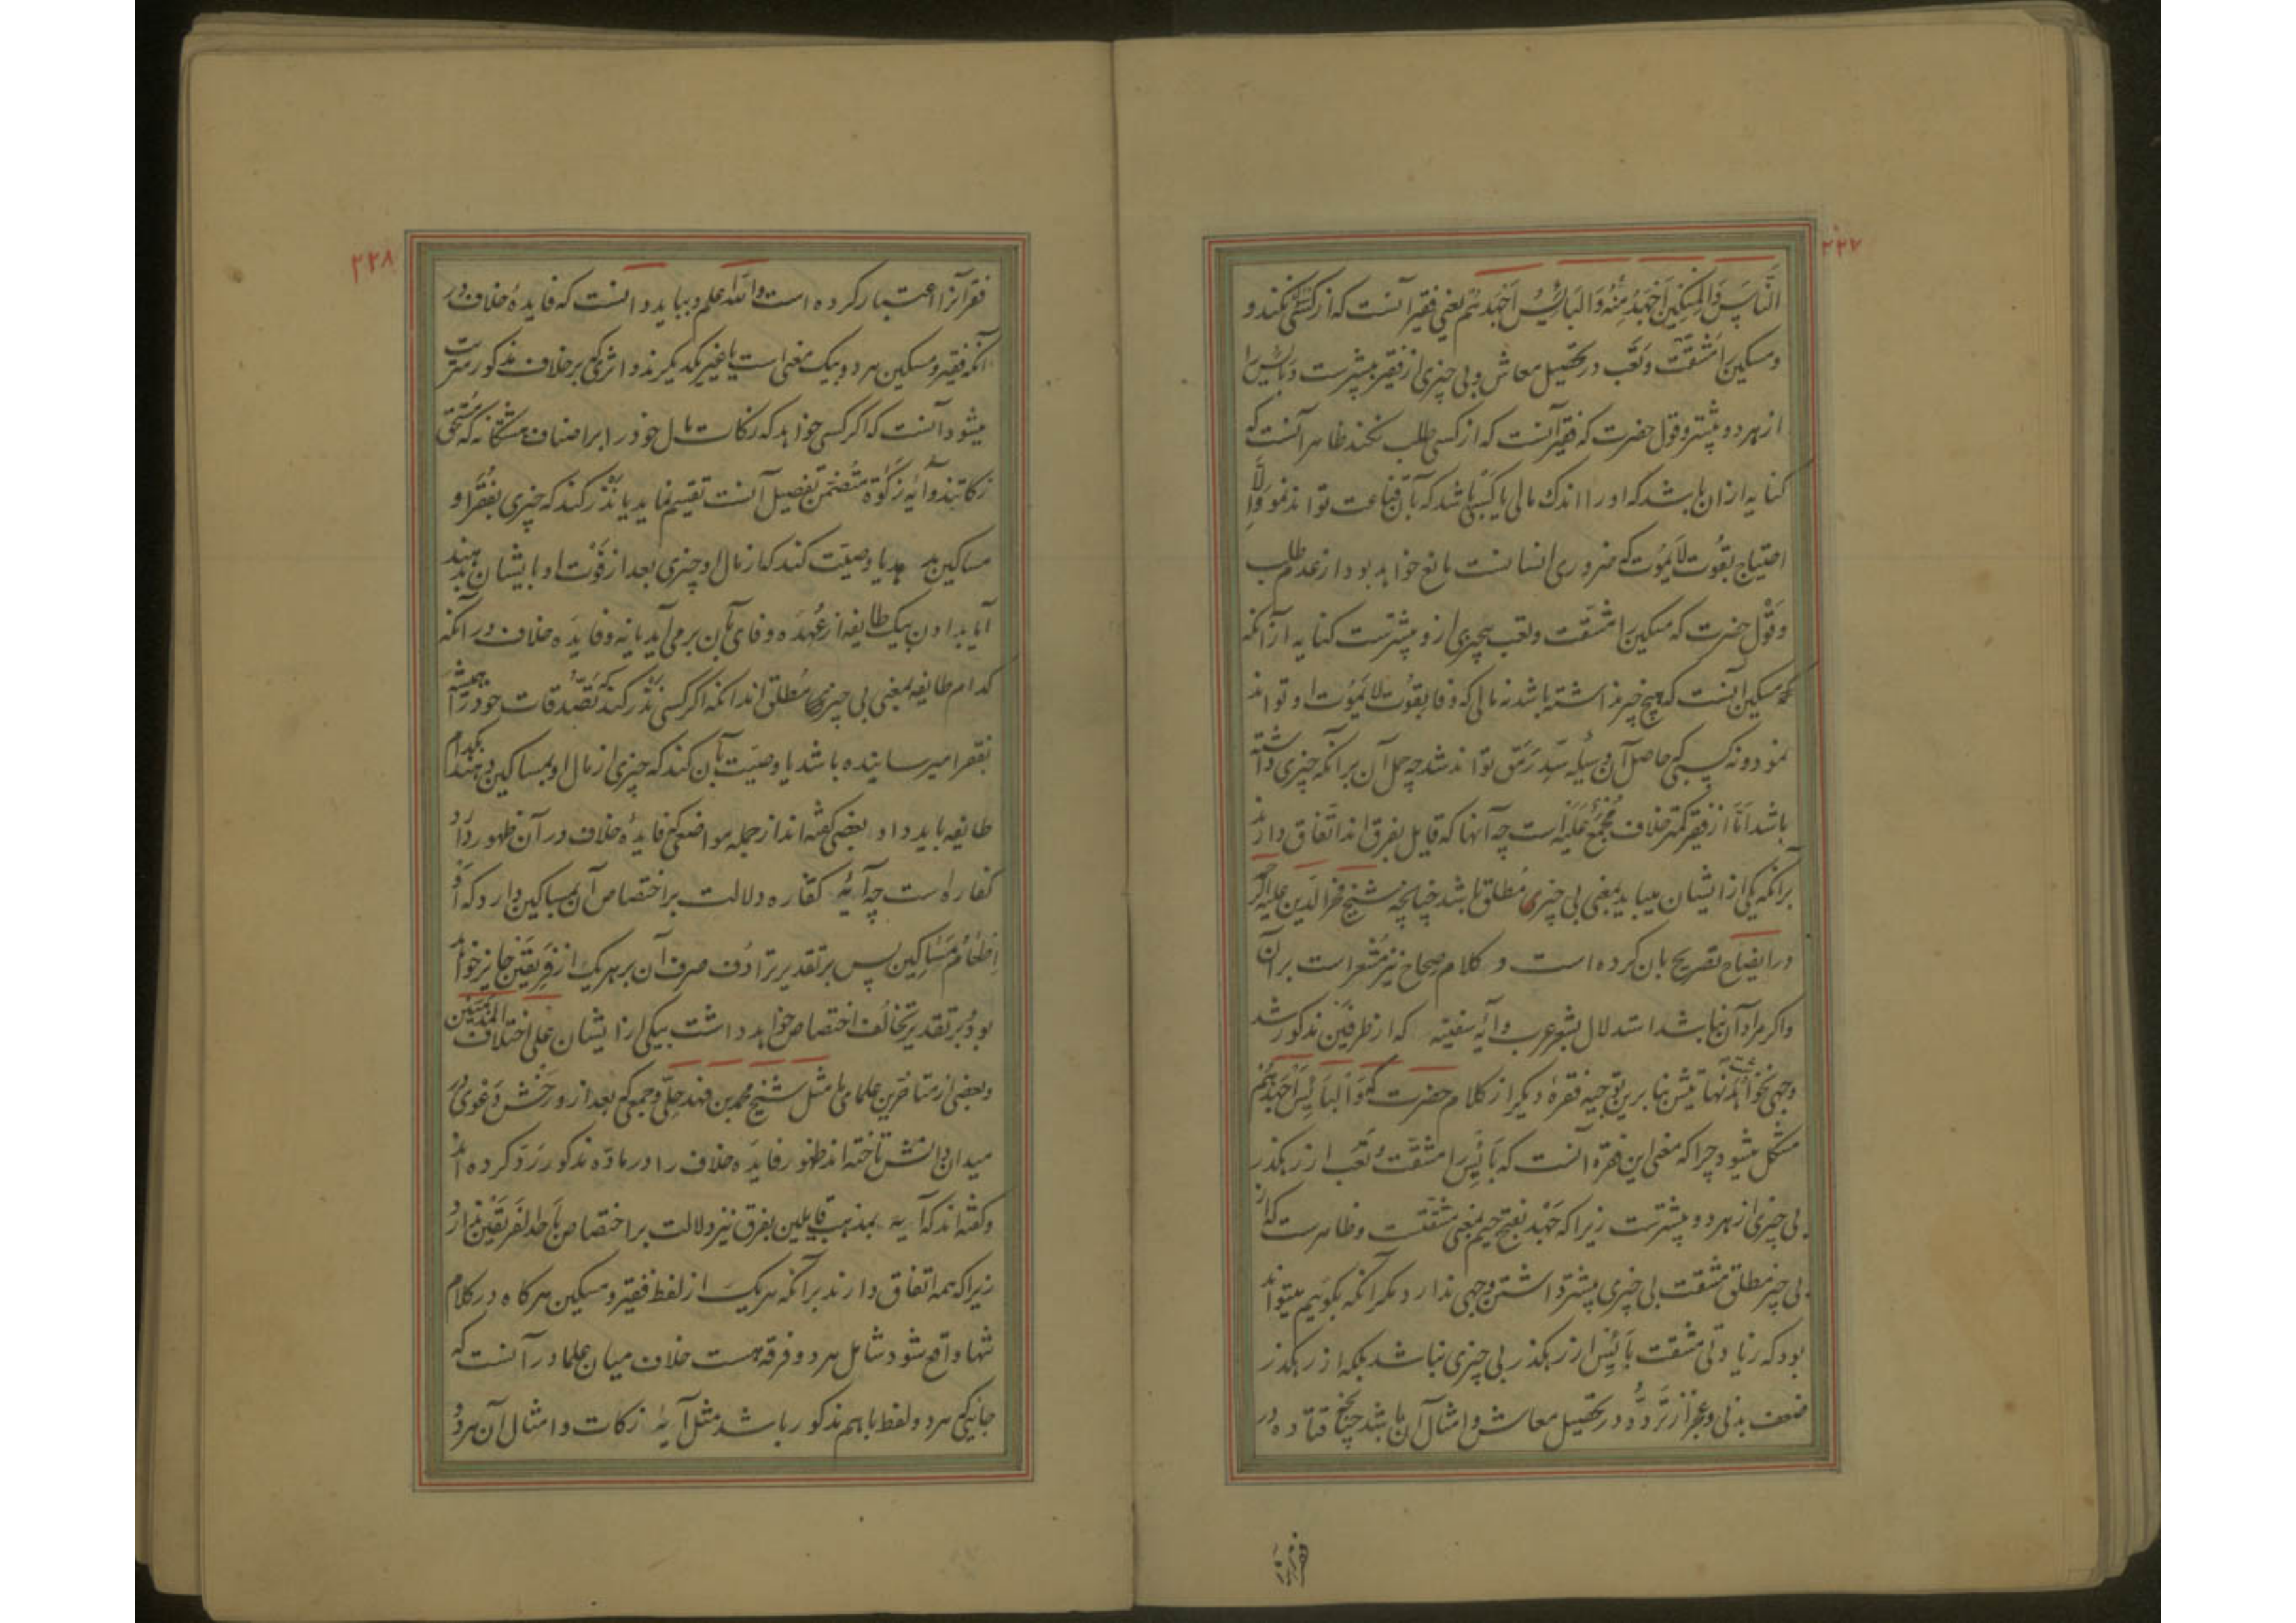 ۲۲۷
النَّاسَ وَالمِسْکِینُ اَجْهَدُ مِنْهُ وَالبَائِسُ اَجْهَدُهُمْ یعنی فقیر آنست که از کسی نکند و
و مسکین را مشقت و تعب در تحصیل معاش و بی چیزی از فقیر بیشترست و بائس را
از هر دو بیشتر و قول حضرت که فقیر آنست که از کسی طلب نکند ظاهر آنست که
کنایه ازان باشد که او را اندک مالی یا کسبی باشد که بآن قناعت تواند نمود و الّا
احتیاج بقوت لا یموت که ضروری انسانست مانع خواهد بود از عدم طلب
و قول حضرت که مسکین را مشقت و تعب بیچیزی ازو بیشترست کنایه از آنکه
که مسکین آنست که هیچ چیز نداشته باشد نه مالی که وفا بقوت لا یموت او تواند
نمود و نه کسبی که حاصل آن وسیله سدّ رمق تواند شد چه حمل آن برآنکه چیزی داشته
باشد امّا از فقیر کمتر خلاف مجمع علیه است چه آنها که قایل بفرق اند اتفاق دارند
برآنکه یکی از ایشان میباید بمعنی بی چیزی مطلق باشد چنانچه شیخ فخر الدین علیه الرحمه
در ایضاح تصریح بان کرده است و کلام صحاح نیز مشعر است برآن
و اگر مراد آن نباشد استدلال بشعر عرب و آیه سفینه که از طرفین مذکور شد
وجهی نخواهد نهایتش بنابرین توجیه فقره دیگر از کلام حضرت که وَالبَائِسُ اَجْهَدُهُمْ
مشکل میشود چرا که معنی این فقره آنست که بائس را مشقت و تعب از رهگذر
بی چیزی از هر دو بیشترست زیرا که جَهْد بفتح جیم بمعنی مشقتست و ظاهرست که از
بی چیز مطلق مشقت بی چیزی بیشتر داشتن وجهی ندارد مگر آنکه بگوییم میتواند
بود که زیادتی مشقت بائس از رهگذر بی چیزی نباشد بلکه از رهگذر
ضعف بدنی و عجز از تردد در تحصیل معاش و امثال آن باشد چنانچه قتاده در
۲۲۸
فقر آنرا اعتبار کرده است والله اعلم و بباید دانست که فایده خلاف در
آنکه فقیر و مسکین هر دو بیک معنی است یا غیر یکدیگرند و اثری که بر خلاف مذکور مترتب
میشود آنست که اگر کسی خواهد که زکات مال خود را بر اصناف هشتگانه که مستحق
زکاتند و آیه زکوة متضمن تفصیل آنست تقسیم نماید یا نذر کند که چیزی بفقرا و
مساکین دهد یا وصیت کند که از مال او چیزی بعد از فوت او بایشان بدهند
آیا بدادن بیک طایفه از عهده وفای بآن برمی آید یا نه و فایده خلاف در آنکه
کدام طایفه بمعنی بی چیزی مطلق اند آنکه اگر کسی نذر کند که تصدقات خود را همیشه
بفقرا میرسانیده باشد یا وصیت بآن کند که چیزی از مال او بمساکین دهند بکدام
طایفه باید داد و بعضی گفته اند از جمله مواضعی که فایده خلاف در آن ظهور دارد
کفاره است چه آیه کفاره دلالت بر اختصاص آن بمساکین دارد که او
اِطْعَامُ مَسَاکِین پس بر تقدیر ترادف صرف آن بر هر یک از فریقین جایز خواهد
بود و بر تقدیر تخالف اختصاص خواهد داشت بیکی از ایشان علی اختلاف المذهبین
و بعضی از متاخرین علمای ما مثل شیخ محمد بن فهد حلّی و جمعی که بعد از و رخش دعوی در
میدان دانش تاخته اند ظهور فایده خلاف را در ماده مذکور رد کرده اند
و گفته اند که آیه بمذهب قایلین بفرق نیز دلالت بر اختصاص باحد الفریقین ندارد
زیرا که همه اتفاق دارند برآنکه هر یک از لفظ فقیر و مسکین هرگاه در کلام
تنها واقع شود شامل هر دو فرقه هست خلاف میان علما در آنست که
جاییکه هر دو لفظ باهم مذکور باشد مثل آیه زکات و امثال آن هر دو